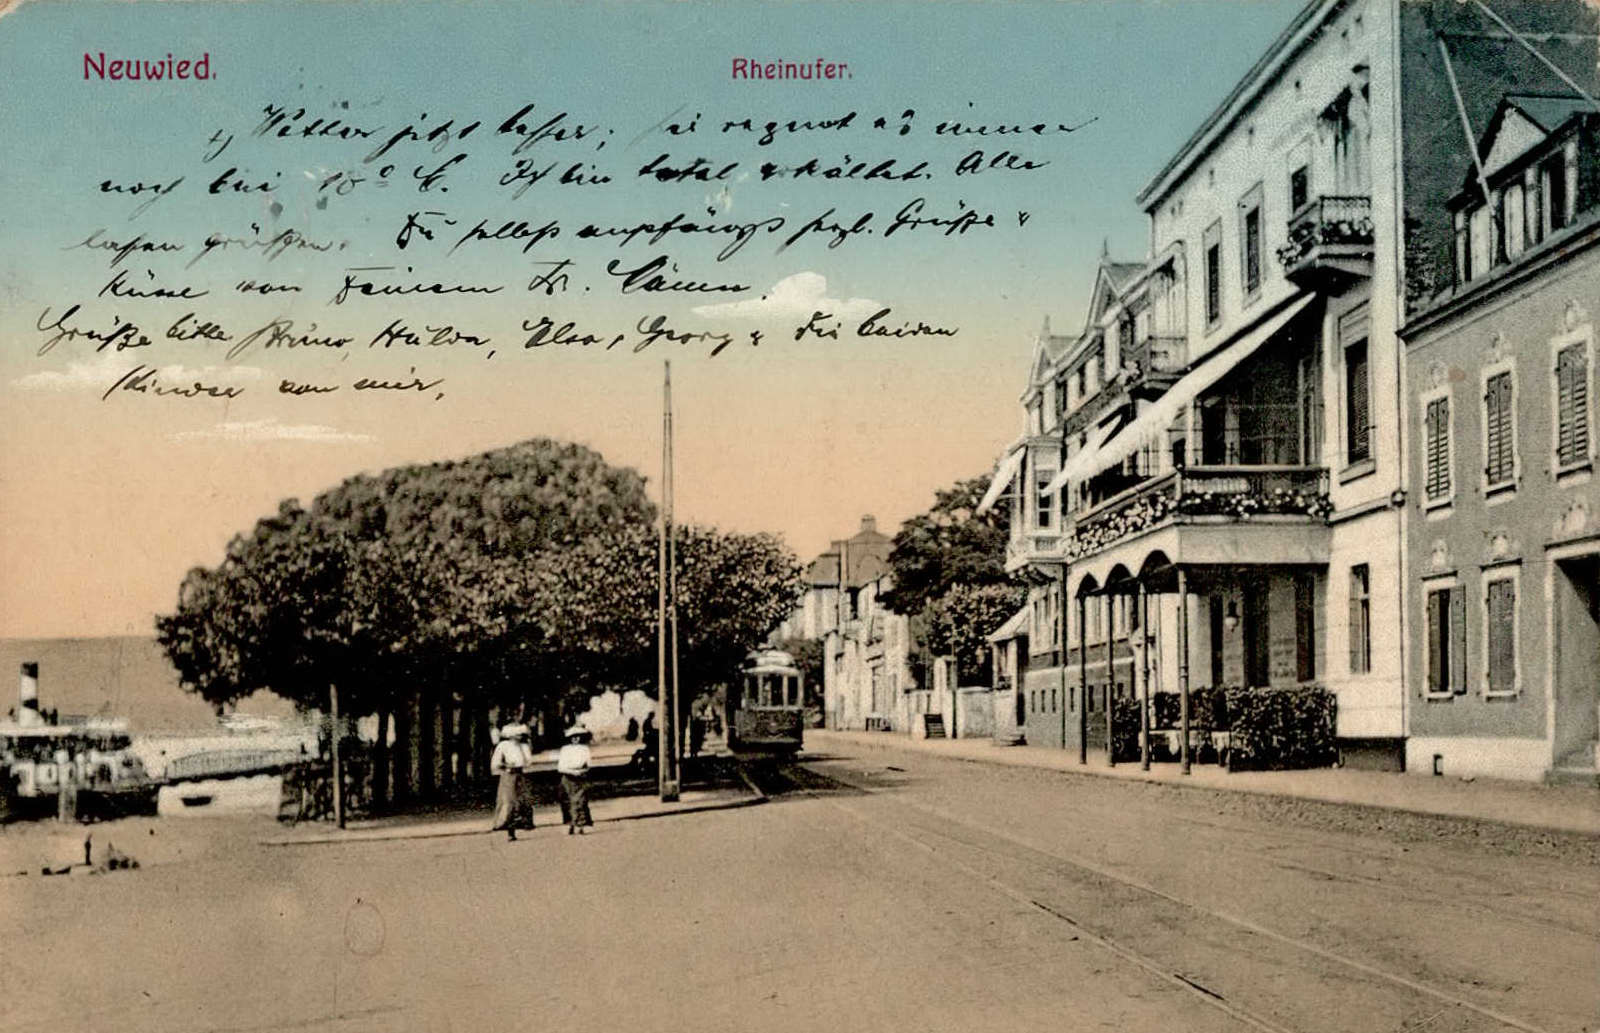 Neuwied.
Rheinufer.
Wetter jetzt besser; regnet es immer
noch bei 10° C. Ich bin total erkältet. Alle
lassen grüßen. Du selbst empfängst herzl. Grüße &
Küsse von Deinem
Grüße bitte Bruno, Hulda, Elsa, Georg & die beiden
Kinder von mir.